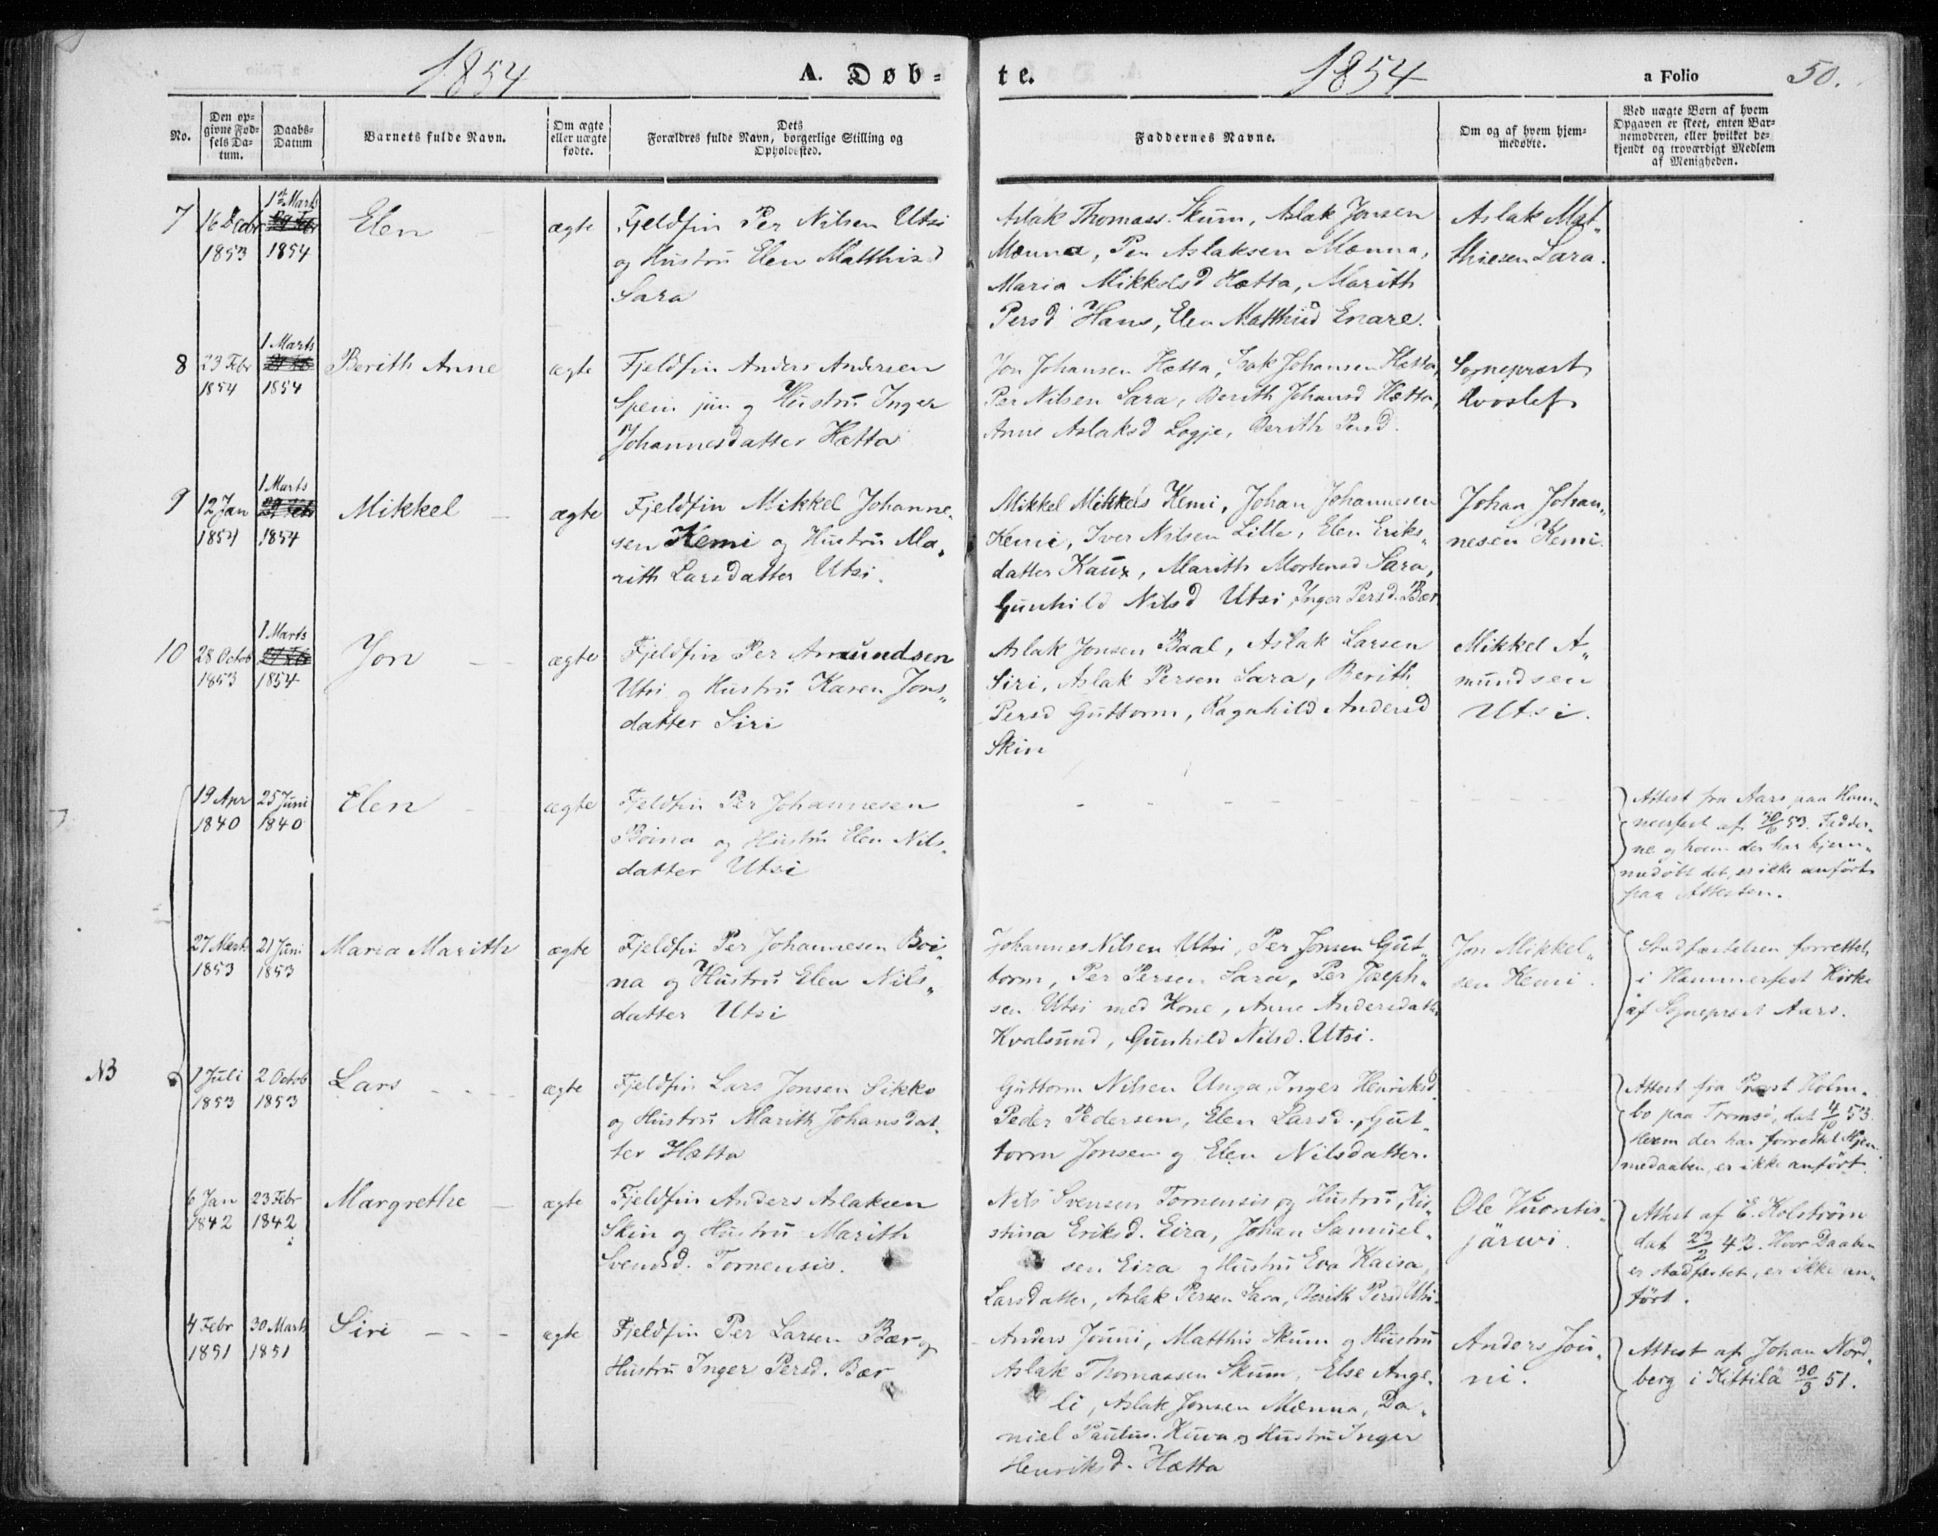 1854 A. Døb-
te. 1854 a Folio 50.
No.
Den op-
givne Fød-
sels Da-
tum.
Daabs-
Datum
Barnets fulde Navn.
Om ægte
eller uægte
fødte.
Dets
Forældres fulde Navn, borgerlige Stilling og
Opholdssted.
Faddernes Navne.
Om og af hvem hjem-
medøbte.
Ved uægte Børn af hvem
Opgaven er skeet, enten Bar-
nemoderen, eller hvilket be-
kjendt og troværdigt Medlem
af Menigheden.
7
16 Decbr
1853
1ste Marts
1854
Elen
ægte
Fjeldfin Per Nilsen Utsi
og Hustru Elen Matthisd
Sara
Aslak Thomass. Skum, Aslak Jonsen
Mænna, Per Aslaksen Mænna,
Maria Mikkelsd Hætta, Marith
Persd Hans, Elen Matthisd Enare.
Aslak Mat-
thiesen Sara.
8
23 Febr
1854
1 Marts
1854
Berith Anne
ægte
Fjeldfin Anders Andersen
Spein jun og Hustru Inger
Johannesdatter Hætta
Jon Johansen Hætta, Isak Johansen Hætta,
Per Nilsen Sara, Berith Johansd Hætta,
Anne Aslaksd Logje, Berith Persd.
Sognepræst
Hvoslef
9
12 Jan
1854
1 Marts
1854
Mikkel
ægte
Fjeldfin Mikkel Johanne-
sen Kemi og Hustru Ma-
rith Larsdatter Utsi.
Mikkel Mikkels Kemi, Johan Johannesen
Kemi, Iver Nilsen Lille, Elen Eriks-
datter Kaux, Marith Mortensd Sara,
Gunhild Nilsd Utsi, Inger Persd. Bær
Johan Johan-
nesen Kemi.
10
28 Octob
1853
1 Marts
1854
Jon
ægte
Fjeldfin Per Amundsen
Utsi og Hustru Karen Jons-
datter Siri
Aslak Jonsen Baal, Aslak Larsen
Siri, Aslak Persen Sara, Berith
Persd Guttorm, Ragnhild Andersd
Skin
Mikkel A-
mundsen
Utsi.
19 Apr
1840
25 Juni
1840
Elen
ægte
Fjeldfin Per Johannesen
Boina og Hustru Elen Nils-
datter Utsi
Attest fra Aars paa Ham-
merfest af 30/6 53. Fadder-
ne og hvem der har hjem-
medøbt det, er ikke anført
paa Attesten.
27 Mart
1853
21 Juni
1853
Maria Marith
ægte
Fjeldfin Per Johannesen Boi-
na og Hustru Elen Nils-
datter Utsi
Johannes Nilsen Utsi, Per Jonsen Gut-
torm, Per Persen Sara, Per Joseph-
sen Utsi med Kone, Anne Andersdatt
Kvalsund, Gunhild Nilsd. Utsi.
Jon Mikkel-
sen Kemi.
Stadfæstelsen forrettet
i Hammerfest Kirke
af Sognepræst Aars.
NB
1 Juli
1853
2 Octob
1853
Lars
ægte
Fjeldfin Lars Jonsen Sikko
og Hustru Marith Johansdat-
ter Hætta
Guttorm Nilsen Unga, Inger Henriksd
Peder Pedersen, Elen Larsd., Gut-
torm Jonsen og Elen Nilsdatter.
Attest fra Provst Holm-
bo paa Tromsö, dat 4/10 53.
Hvem der har forrettet Hjem
medaaben, er ikke anført.
6 Jan
1842
23 Febr
1842
Margrethe
ægte
Fjeldfin Anders Aslaksen
Skin og Hustru Marith
Svendsd. Tornensis.
Nils Svensen Tornensis og Hustru, Kri-
stina Eriksd. Eira, Johan Samuel-
sen Eira og Hustru Eva Kaisa,
Larsdatter, Aslak Persen Sara, Berith Persd Utsi.
Ole Vuontis-
järwi.
Attest af E. Kolström
dat 23/2 42. Hvor Daaben
er stadfæstet, er ikke an-
ført.
4 Febr
1851
30 Marts
1851
Siri
ægte
Fjeldfin Per Larsen Bær og
Hustru Inger Persd. Bær
Anders Jouni, Matthis Skum og Hustru
Aslak Thomassen Skum, Else Ange-
li, Aslak Jonsen Mænna, Da-
niel Paulus. Kuva og Hustru Inger
Henriksd. Hætta
Anders Jou-
ni.
Attest af Johan Nord-
berg i Kittilä 30/3 51.